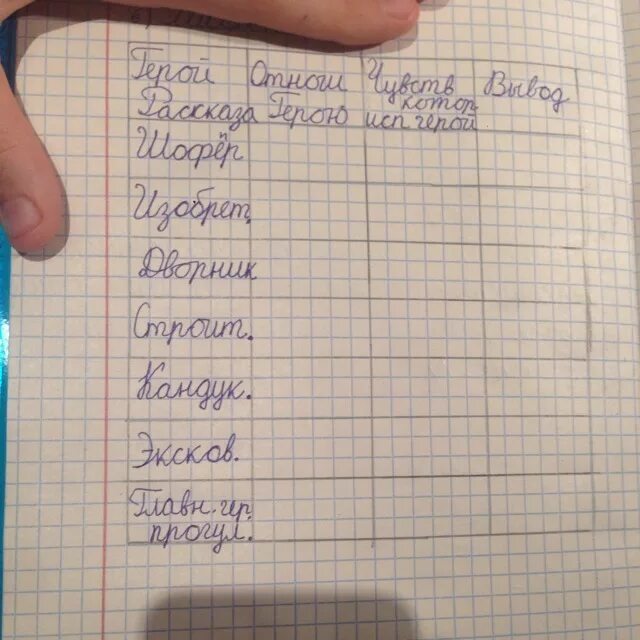 Герой Отнош Чувств Вывод
Рассказа Герою котор
исп герой
Шофёр
Изобрет.
Дворник
Строит.
Кандук.
Эксков.
Главн. гер.
прогул.